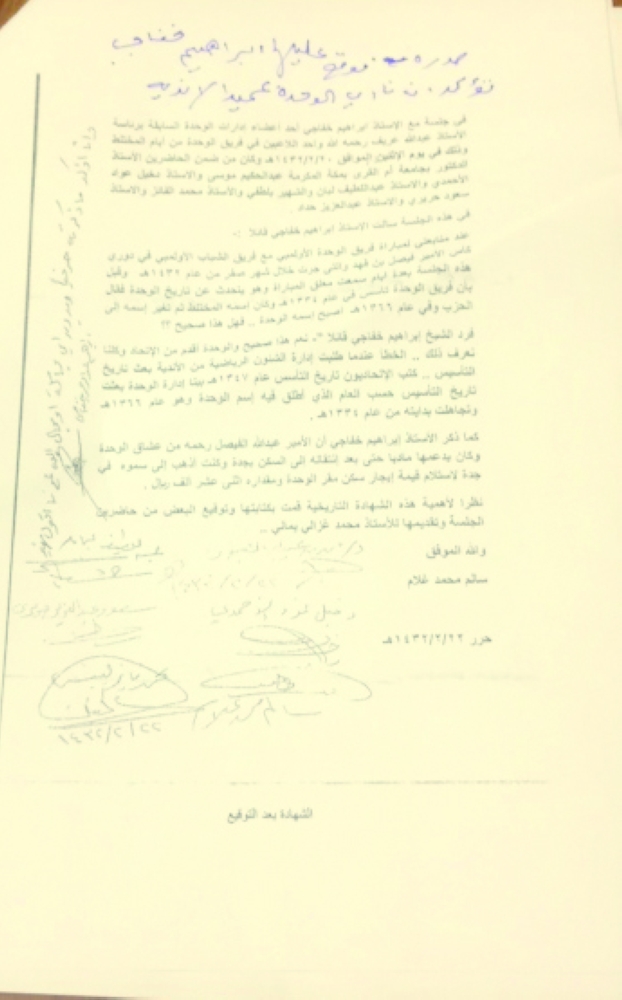 صوره موقع عليها ابراهيم خفاجي
تؤكد ان نادي الوحدة عميد الانديه
في جلسة مع الاستاذ ابراهيم خفاجي أحد أعضاء إدارات الوحدة السابقة برئاسة
الأستاذ عبدالله عريف رحمه الله واحد اللاعبين في فريق الوحدة من أيام المختلط
وذلك في يوم الإثنين الموافق ١٤٣٢/٢/٢٠هـ وكان من ضمن الحاضرين الأستاذ
الدكتور بجامعة أم القرى بمكة المكرمة عبدالحكيم موسى والاستاذ دخيل عواد
الأحمدي والأستاذ عبداللطيف لبان والشهير بلطفي والأستاذ محمد الفائز والاستاذ
سعود حريري والأستاذ عبدالعزيز حداد .
في هذه الجلسة سألت الاستاذ ابراهيم خفاجي قائلا :-
عند متابعتي لمباراة فريق الوحدة الأولمبي مع فريق الشباب الأولمبي في دوري
كأس الأمير فيصل بن فهد والتي جرت خلال شهر صفر من عام ١٤٣٢هـ وقبل
هذه الجلسة بعدة أيام سمعت معلق المباراة وهو يتحدث عن تاريخ الوحدة فقال
بأن فريق الوحدة تأسس في عام ١٣٣٤هـ وكان اسمه المختلط ثم تغير إسمه إلى
الحزب وفي عام ١٣٦٦هـ أصبح اسمه الوحدة .. فهل هذا صحيح ؟!
فرد الشيخ إبراهيم خفاجي قائلا "- نعم هذا صحيح والوحدة أقدم من الإتحاد وكلنا
نعرف ذلك .. الخطأ عندما طلبت إدارة الشئون الرياضية من الأندية بعث تاريخ
التأسيس .. كتب الإتحاديون تاريخ التأسس عام ١٣٤٧هـ بينا إدارة الوحدة بعثت
تاريخ التأسيس حسب العام الذي أطلق فيه إسم الوحدة وهو عام ١٣٦٦هـ
وتجاهلت بدايته من عام ١٣٣٤هـ .
كما ذكر الأستاذ إبراهيم خفاجي أن الأمير عبدالله الفيصل رحمه من عشاق الوحدة
وكان يدعمها ماديا حتى بعد إنتقاله إلى السكن بجدة وكنت اذهب إلى سموه في
جدة لاستلام قيمة إيجار سكن مقر الوحدة ومقداره اثنى عشر الف ريال .
نظرا لأهمية هذه الشهادة التاريخية قمت بكتابتها وتوقيع البعض من حاضرين
الجلسة وتقديمها للأستاذ محمد غزالي يماني ..
والله الموفق
سالم محمد غلام
دخيل عواد الأحمدي
حرر ١٤٣٢/٢/٢٢هـ
سالم محمد غلام
١٤٣٢/٢/٢٢
الشهادة بعد التوقيع